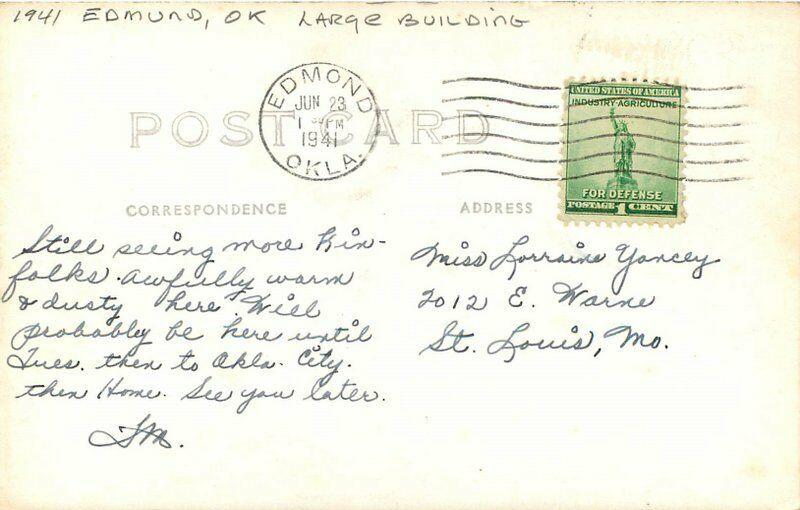 1941 EDMUND, OK LARGE BUILDING
EDMOND
JUN 23
1 PM
1941
OKLA.
POST CARD
UNITED STATES OF AMERICA
INDUSTRY AGRICULTURE
FOR DEFENSE
POSTAGE 1 CENT
CORRESPONDENCE
ADDRESS
Still seeing more kin-
folks. Awfully warm
& dusty here. Will
probably be here until
Tues. then to Okla. City.
then Home. See you later.
Miss Lorraine Yancey
2012 E. Warne
St. Louis, Mo.